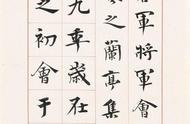 右軍將軍會
之蘭亭集
九年歲在
之初會于